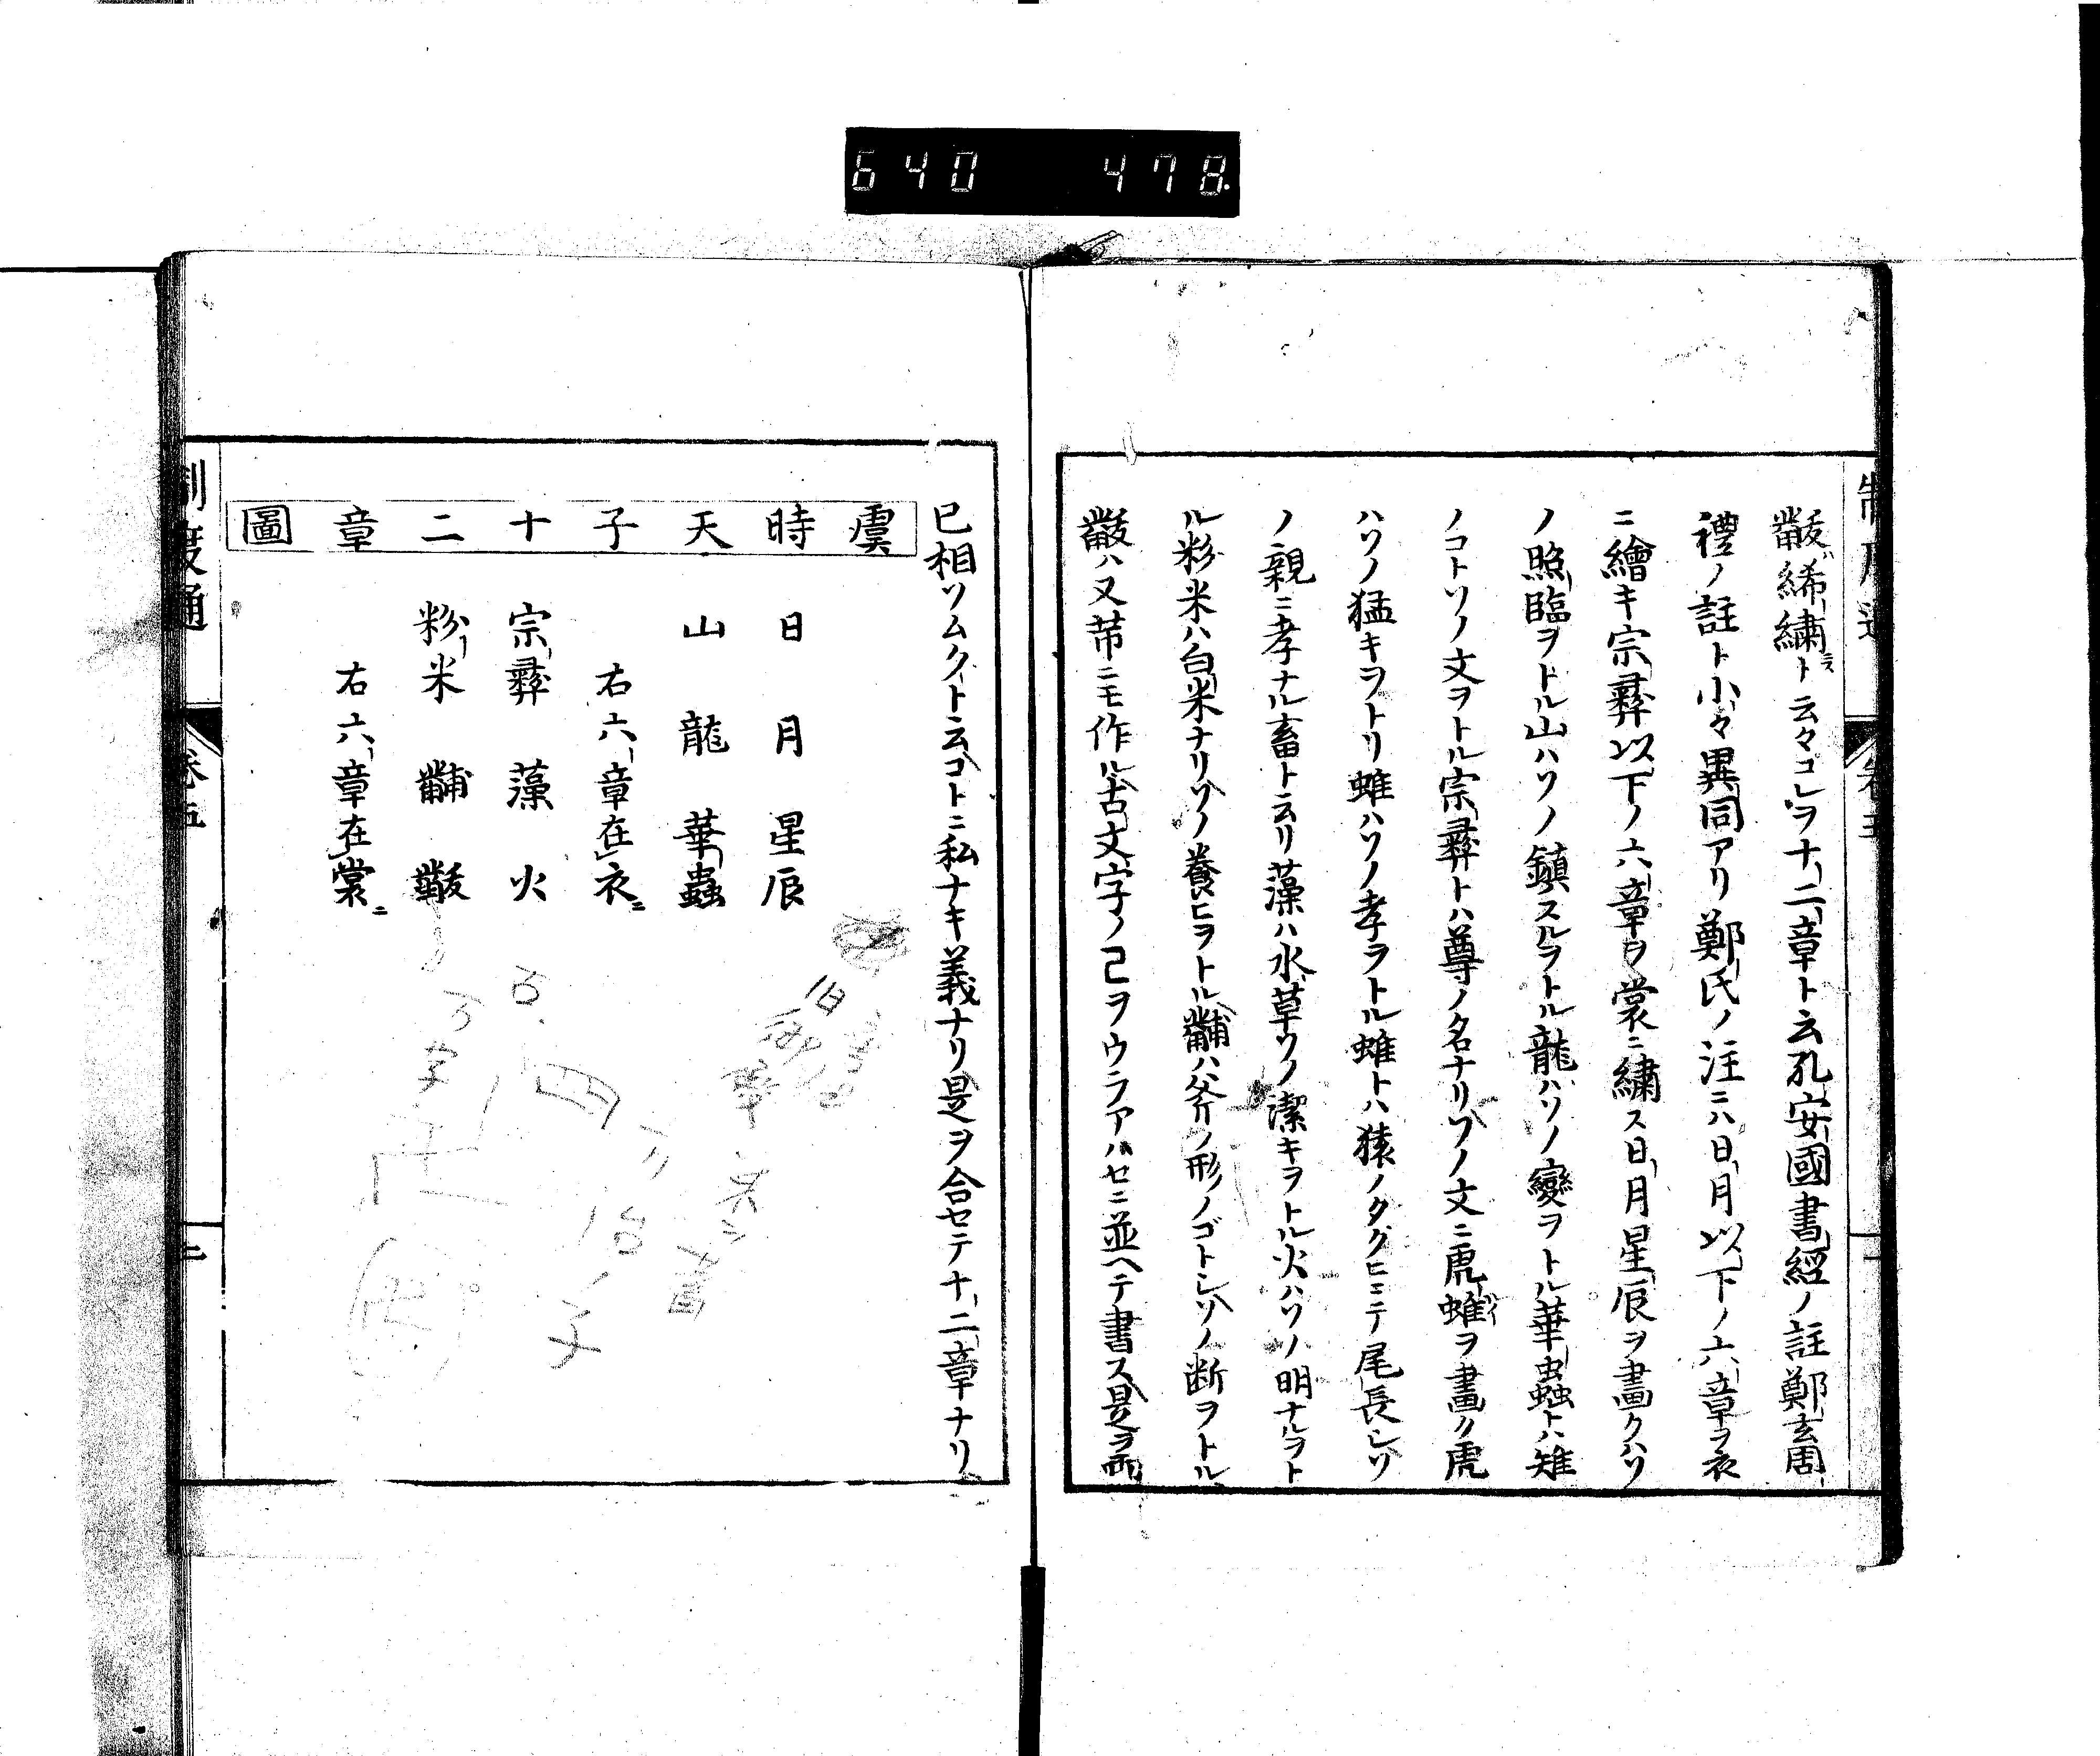 640 478
黻絺繡ト云々コレヲ十二章ト云孔安國書經ノ註鄭玄周
禮ノ註ト小々異同アリ鄭氏ノ注ニハ日月以下ノ六章ヲ衣
ニ繪キ宗彛以下ノ六章ヲ裳ニ繡ス日月星辰ヲ畫クハソ
ノ照臨ヲトル山ハソノ鎮スルヲトル龍ハソノ變ヲトル華虫蟲トハ雉
ノコトソノ文ヲトル宗彛トハ尊ノ名ナリソノ文ニ虎蜼ヲ畫ク虎
ハソノ猛キヲトリ蜼ハソノ孝ヲトル蜼トハ猿ノタグヒニテ尾長シソ
ノ親ニ孝ナル畜ト云リ藻ハ水草ソノ潔キヲトル火ハソノ明ナルヲト
ル粉米ハ白米ナリソノ養ヒヲトル黼ハ斧ノ形ノゴトシソノ断ヲトル
黻ハ又芾ニモ作ル古文字ノ己ヲウラアハセニ並ヘテ書ス是ヲ両
已相ソムクト云コトニ私ナキ義ナリ是ヲ合セテ十二章ナリ
虞時天子十二章圖
日 月 星辰
山 龍 華蟲
右六章在衣ニ
宗彛 藻 火
粉米 黼 黻
右六章在裳ニ
制度通 卷五 二